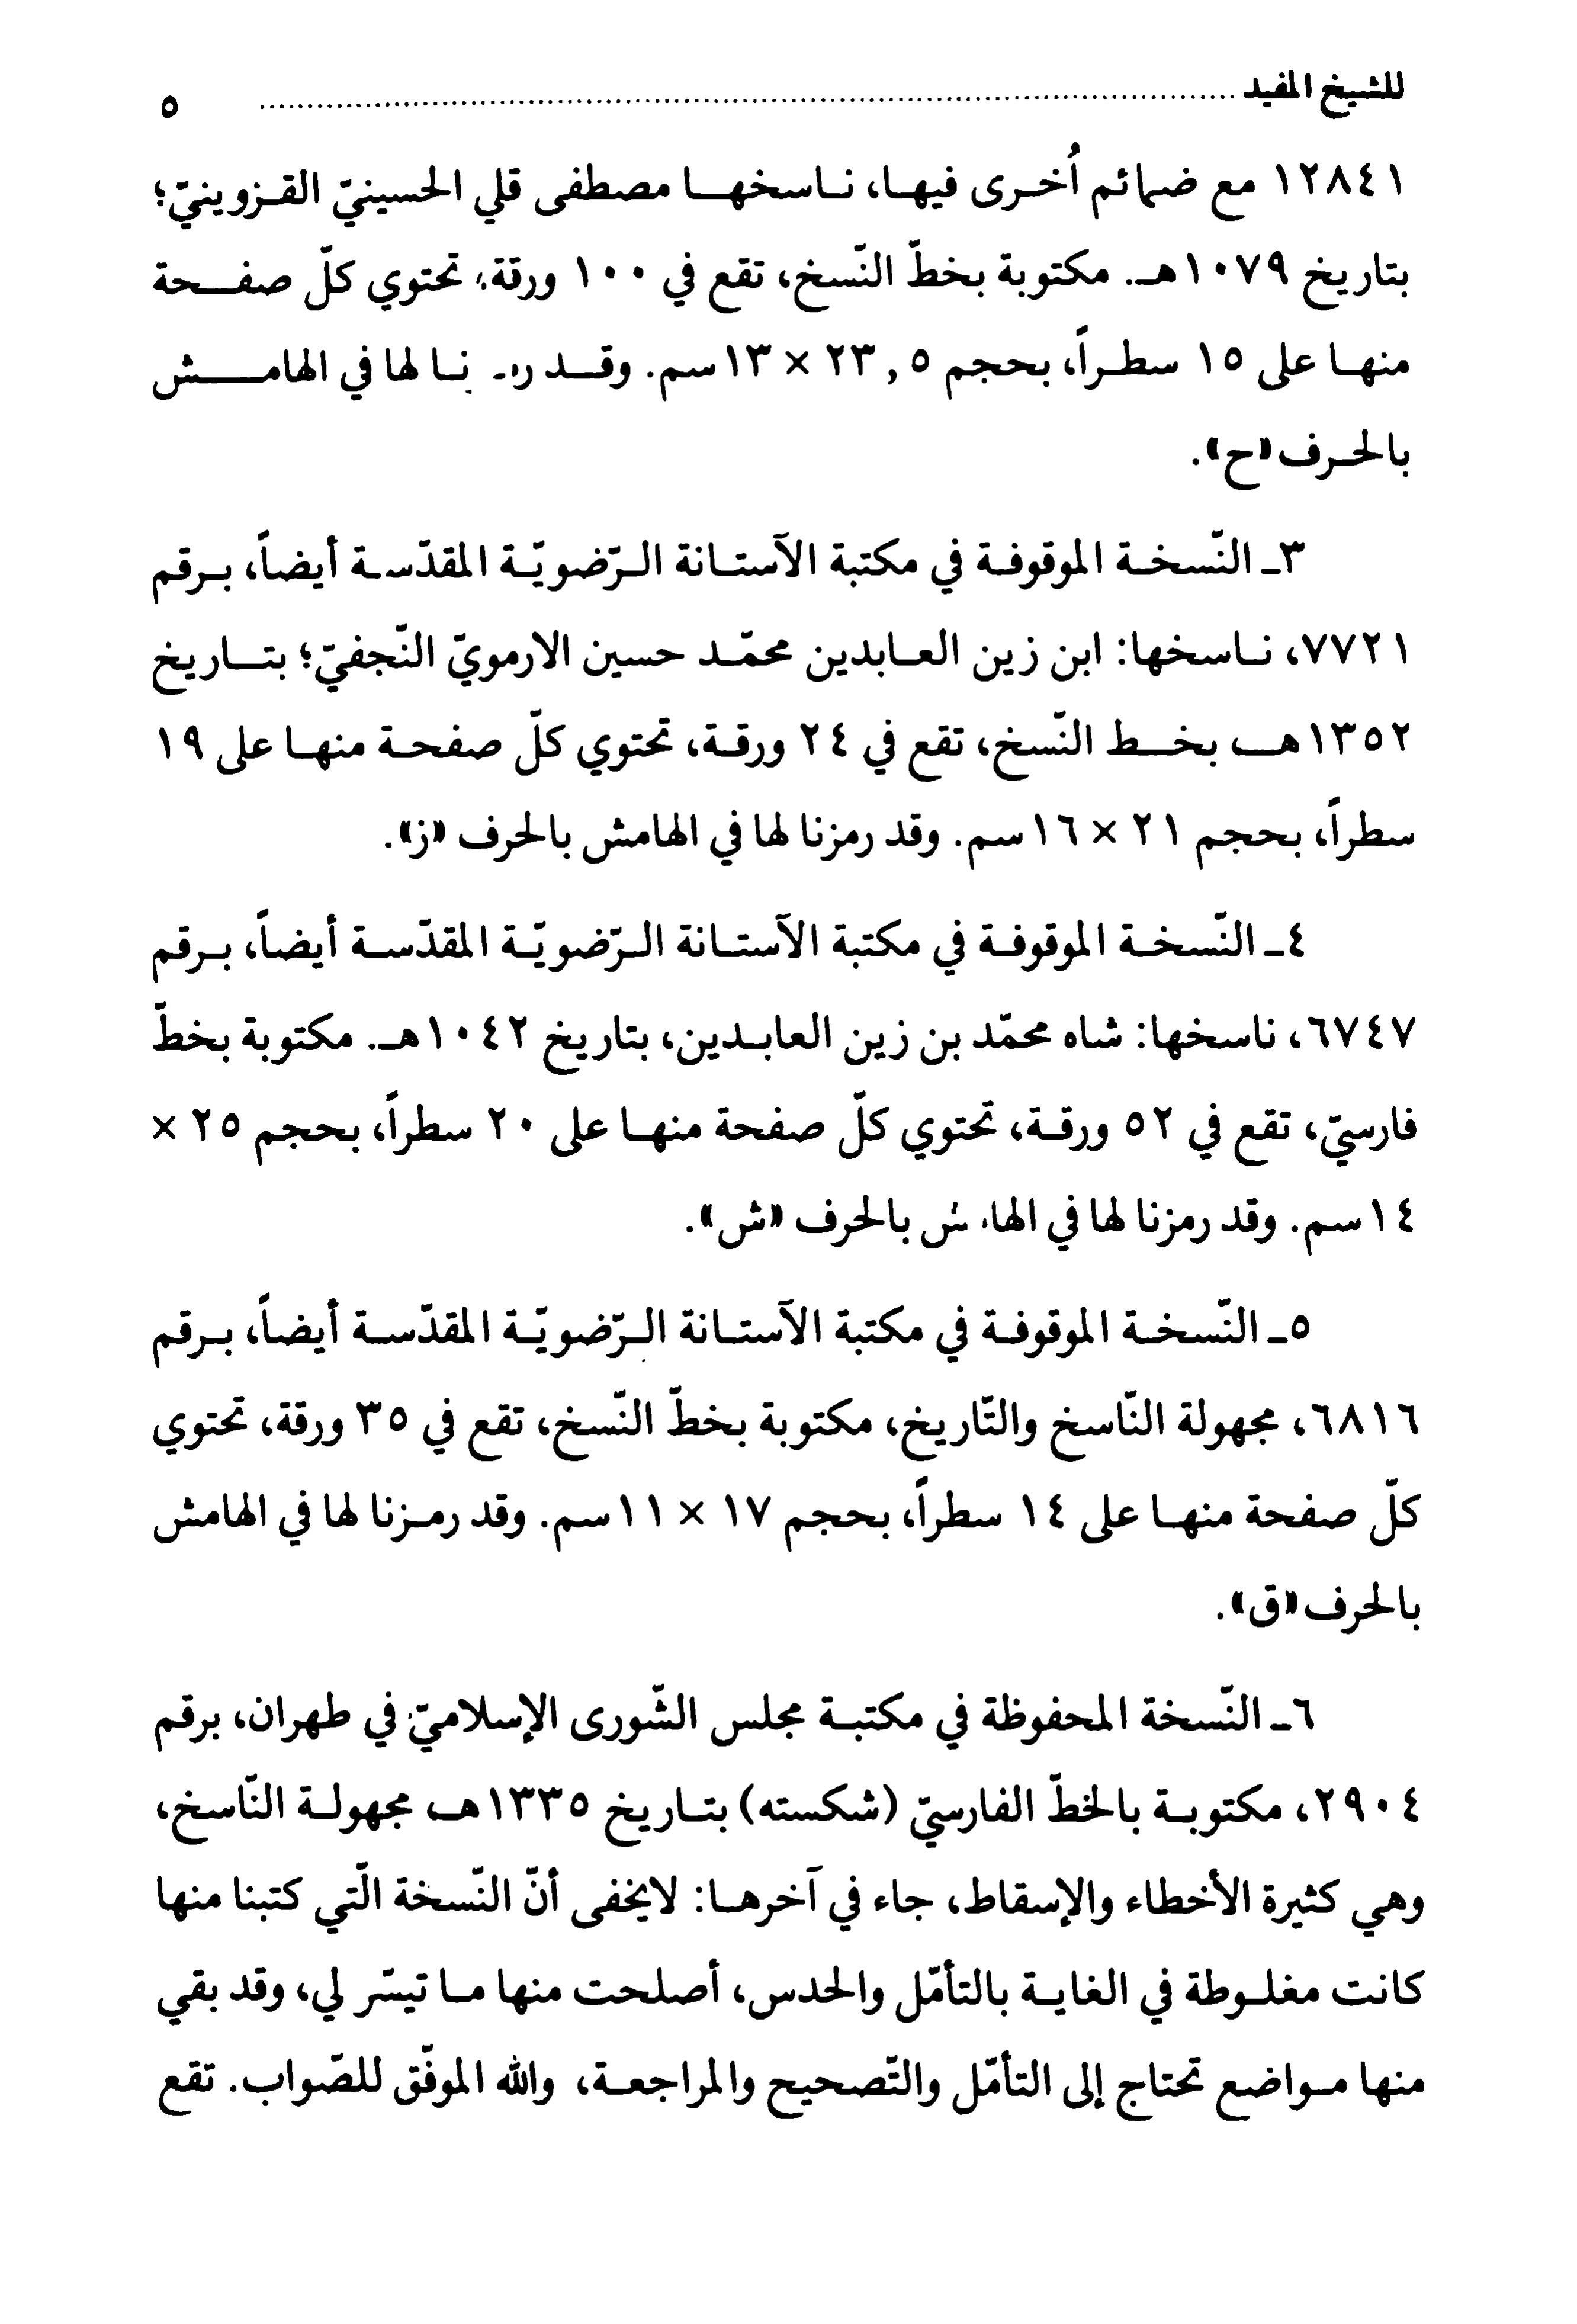 للشيخ المفيد ........................................ ٥
١٢٨٤١ مع ضمائم أُخرى فيها، ناسخها مصطفى قلي الحسينيّ القزوينيّ؛
بتاريخ ١٠٧٩هـ. مكتوبة بخطّ النّسخ، تقع في ١٠٠ ورقة، تحتوي كلّ صفحة
منها على ١٥ سطراً، بحجم ٢٣,٥ × ١٣سم. وقد لها في الهامش
بالحرف «ح».
٣ـ النّسخة الموقوفة في مكتبة الآستانة الرّضويّة المقدّسة أيضاً، برقم
٧٧٢١، ناسخها: ابن زين العابدين محمّد حسين الارمويّ النّجفيّ؛ بتاريخ
١٣٥٢هـ بخط النّسخ، تقع في ٢٤ ورقة، تحتوي كلّ صفحة منها على ١٩
سطراً، بحجم ٢١ × ١٦سم. وقد رمزنا لها في الهامش بالحرف «ز».
٤ـ النّسخة الموقوفة في مكتبة الآستانة الرّضويّة المقدّسة أيضاً، برقم
٦٧٤٧، ناسخها: شاه محمّد بن زين العابدين، بتاريخ ١٠٤٢هـ. مكتوبة بخطّ
فارسيّ، تقع في ٥٢ ورقة، تحتوي كلّ صفحة منها على ٢٠ سطراً، بحجم ٢٥ ×
١٤سم. وقد رمزنا لها في بالحرف «ش».
٥ـ النّسخة الموقوفة في مكتبة الآستانة الرّضويّة المقدّسة أيضاً، برقم
٦٨١٦، مجهولة النّاسخ والتّاريخ، مكتوبة بخطّ النّسخ، تقع في ٣٥ ورقة، تحتوي
كلّ صفحة منها على ١٤ سطراً، بحجم ١٧ × ١١سم. وقد رمزنا لها في الهامش
بالحرف «ق».
٦ـ النّسخة المحفوظة في مكتبة مجلس الشّورى الإسلاميّ في طهران، برقم
٢٩٠٤، مكتوبة بالخطّ الفارسيّ (شكسته) بتاريخ ١٣٣٥هـ، مجهولة النّاسخ،
وهي كثيرة الأخطاء والإسقاط، جاء في آخرها: لايخفى أنّ النّسخة الّتي كتبنا منها
كانت مغلوطة في الغاية بالتأمّل والحدس، أصلحت منها ما تيسّر لي، وقد بقي
منها مواضع تحتاج إلى التأمّل والتّصحيح والمراجعة، والله الموفّق للصّواب. تقع